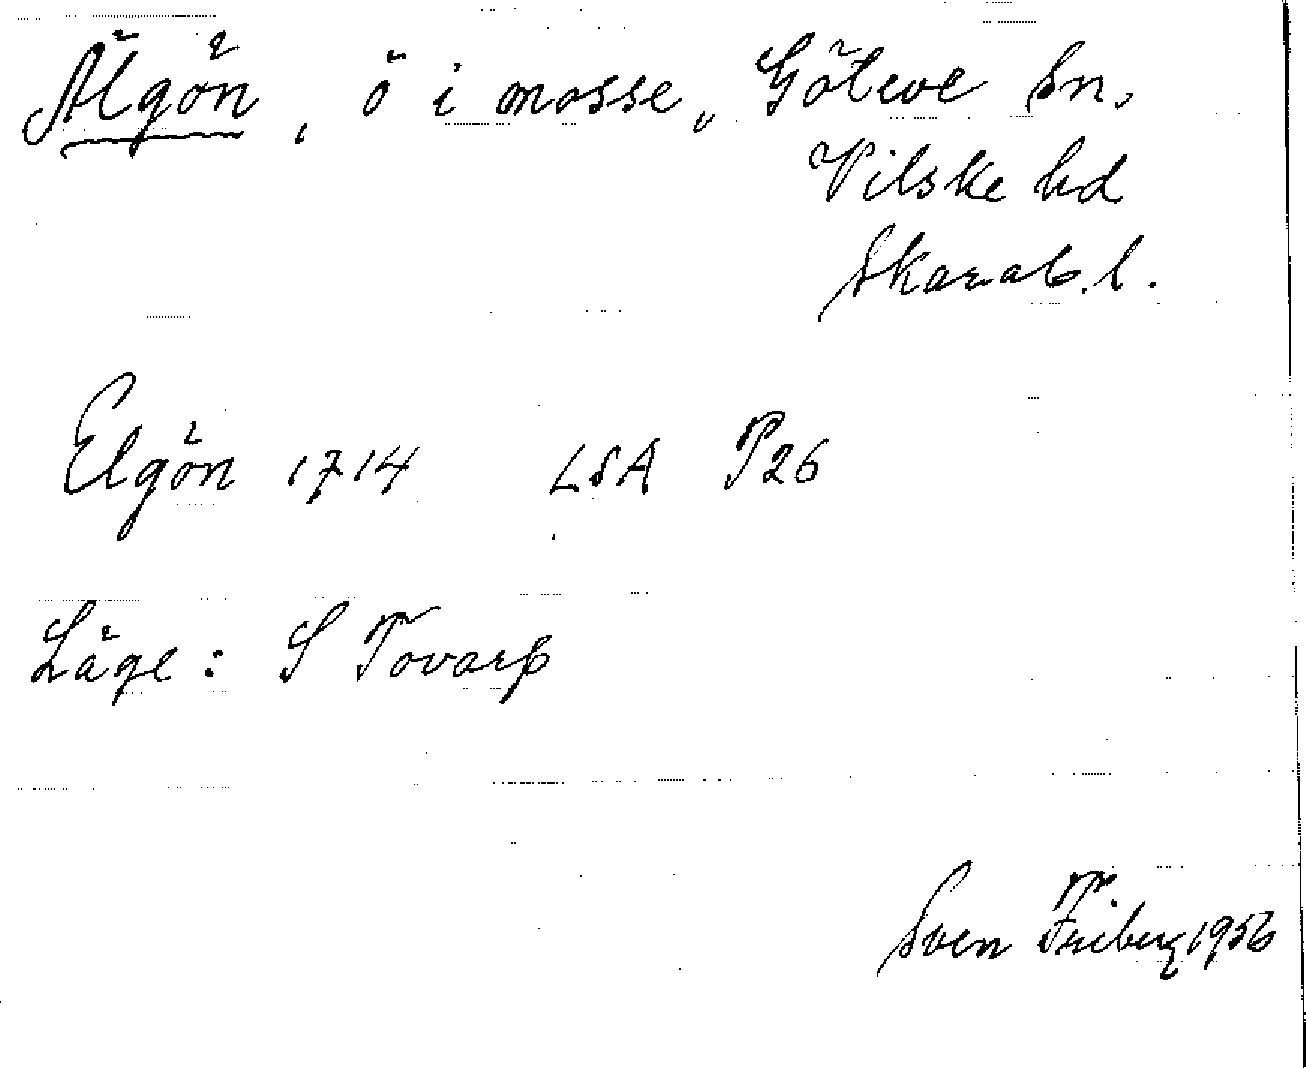 Älgön, ö i mosse, Göteve Sn,
Vilske hd
Skarab. l.
Elgön 1714 LSA P26
Läge: S Tovarp
Sven Friberg 1956